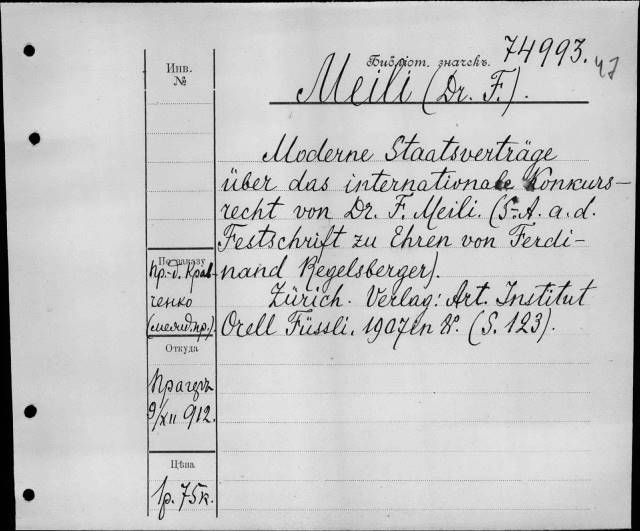 Инв.
№
Библіот. значекъ. 74993.
47
Meili (Dr. F.).
Moderne Staatsverträge
über das internationale Konkurs-
recht von Dr. F. Meili. (S. A. a. d.
Festschrift zu Ehren von Ferdi-
nand Regelsberger).
Zürich. Verlag: Art. Institut
Orell Füssli. 1907 in 8°. (S. 123).
По заказу
пр.-д. Крав-
ченко
(межд. пр.).
Откуда
Прагеръ
9/XII 912.
Цѣна
1р. 75к.